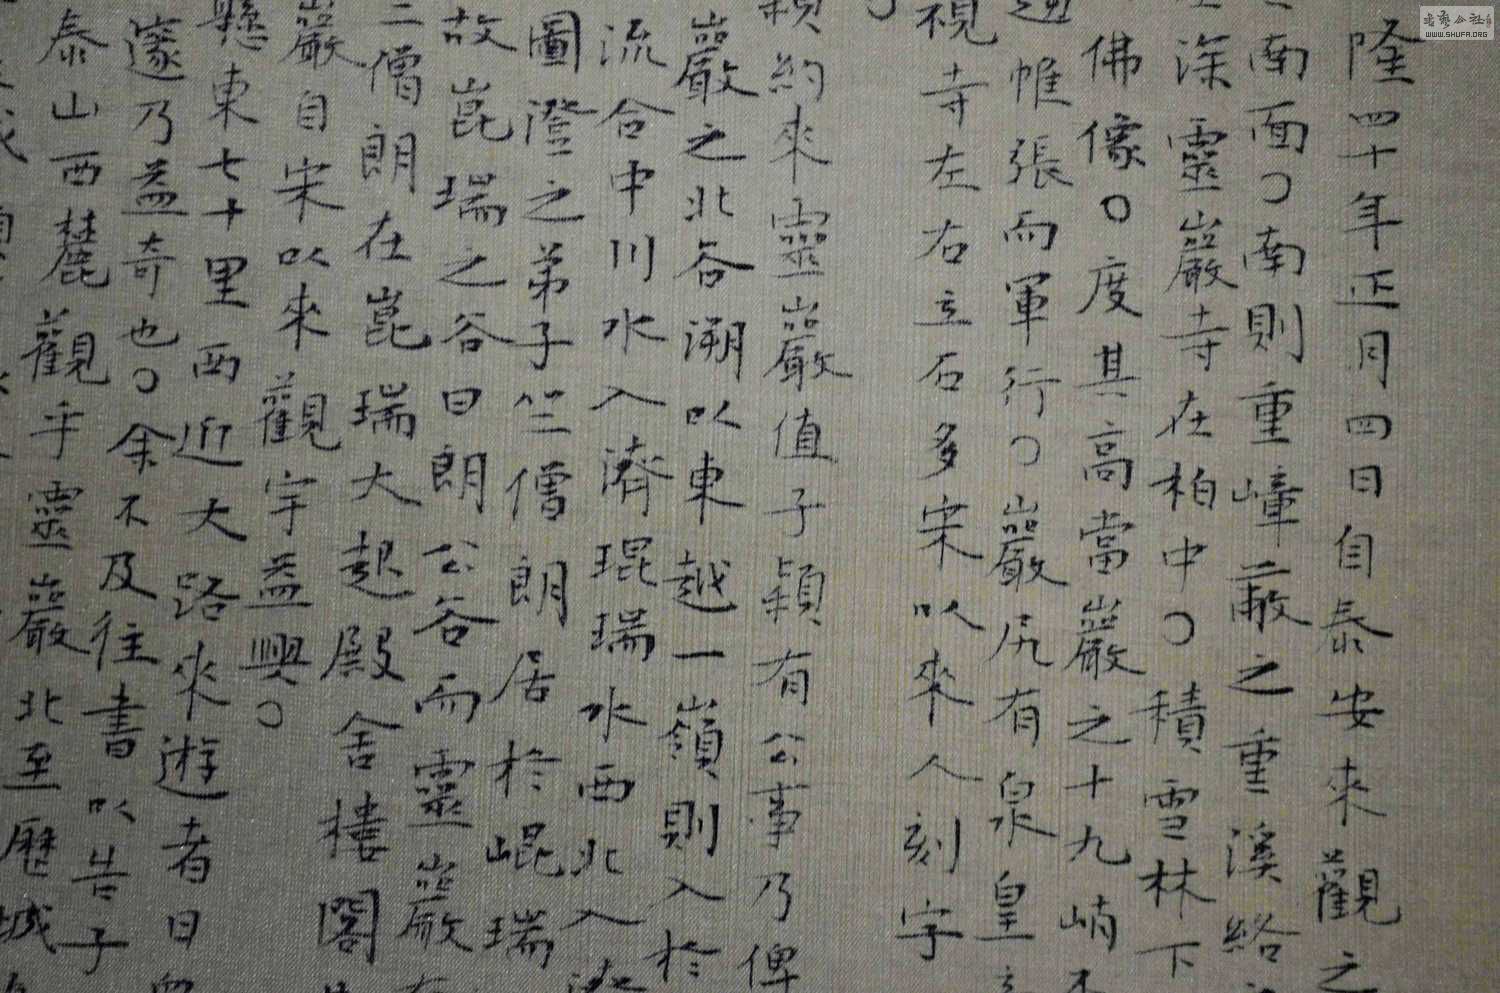 隆四十年正月四日自泰安來觀之
南面〇南則重嶂蔽之重溪絡
深靈巖寺在柏中〇積雪林下
佛像〇度其高當巖之十九峭
迴帷張而軍行〇巖尻有泉皇
視寺左右立石多宋以來人刻字
潁約來靈巖值子潁有公事乃俾
巖之北谷溯以東越一嶺則入於
流合中川水入濟琨瑞水西北入濟
圖澄之弟子竺僧朗居於崐瑞
故崑瑞之谷曰朗公谷而靈巖
竺僧朗在崑瑞大起殿舍樓閣
巖自宋以來觀宇益興〇
懸東七十里西近大路來遊者日眾
邃乃益奇也〇余不及往書以告子
泰山西麓觀乎靈巖北至歷城
书艺公社
WWW.SHUFA.ORG